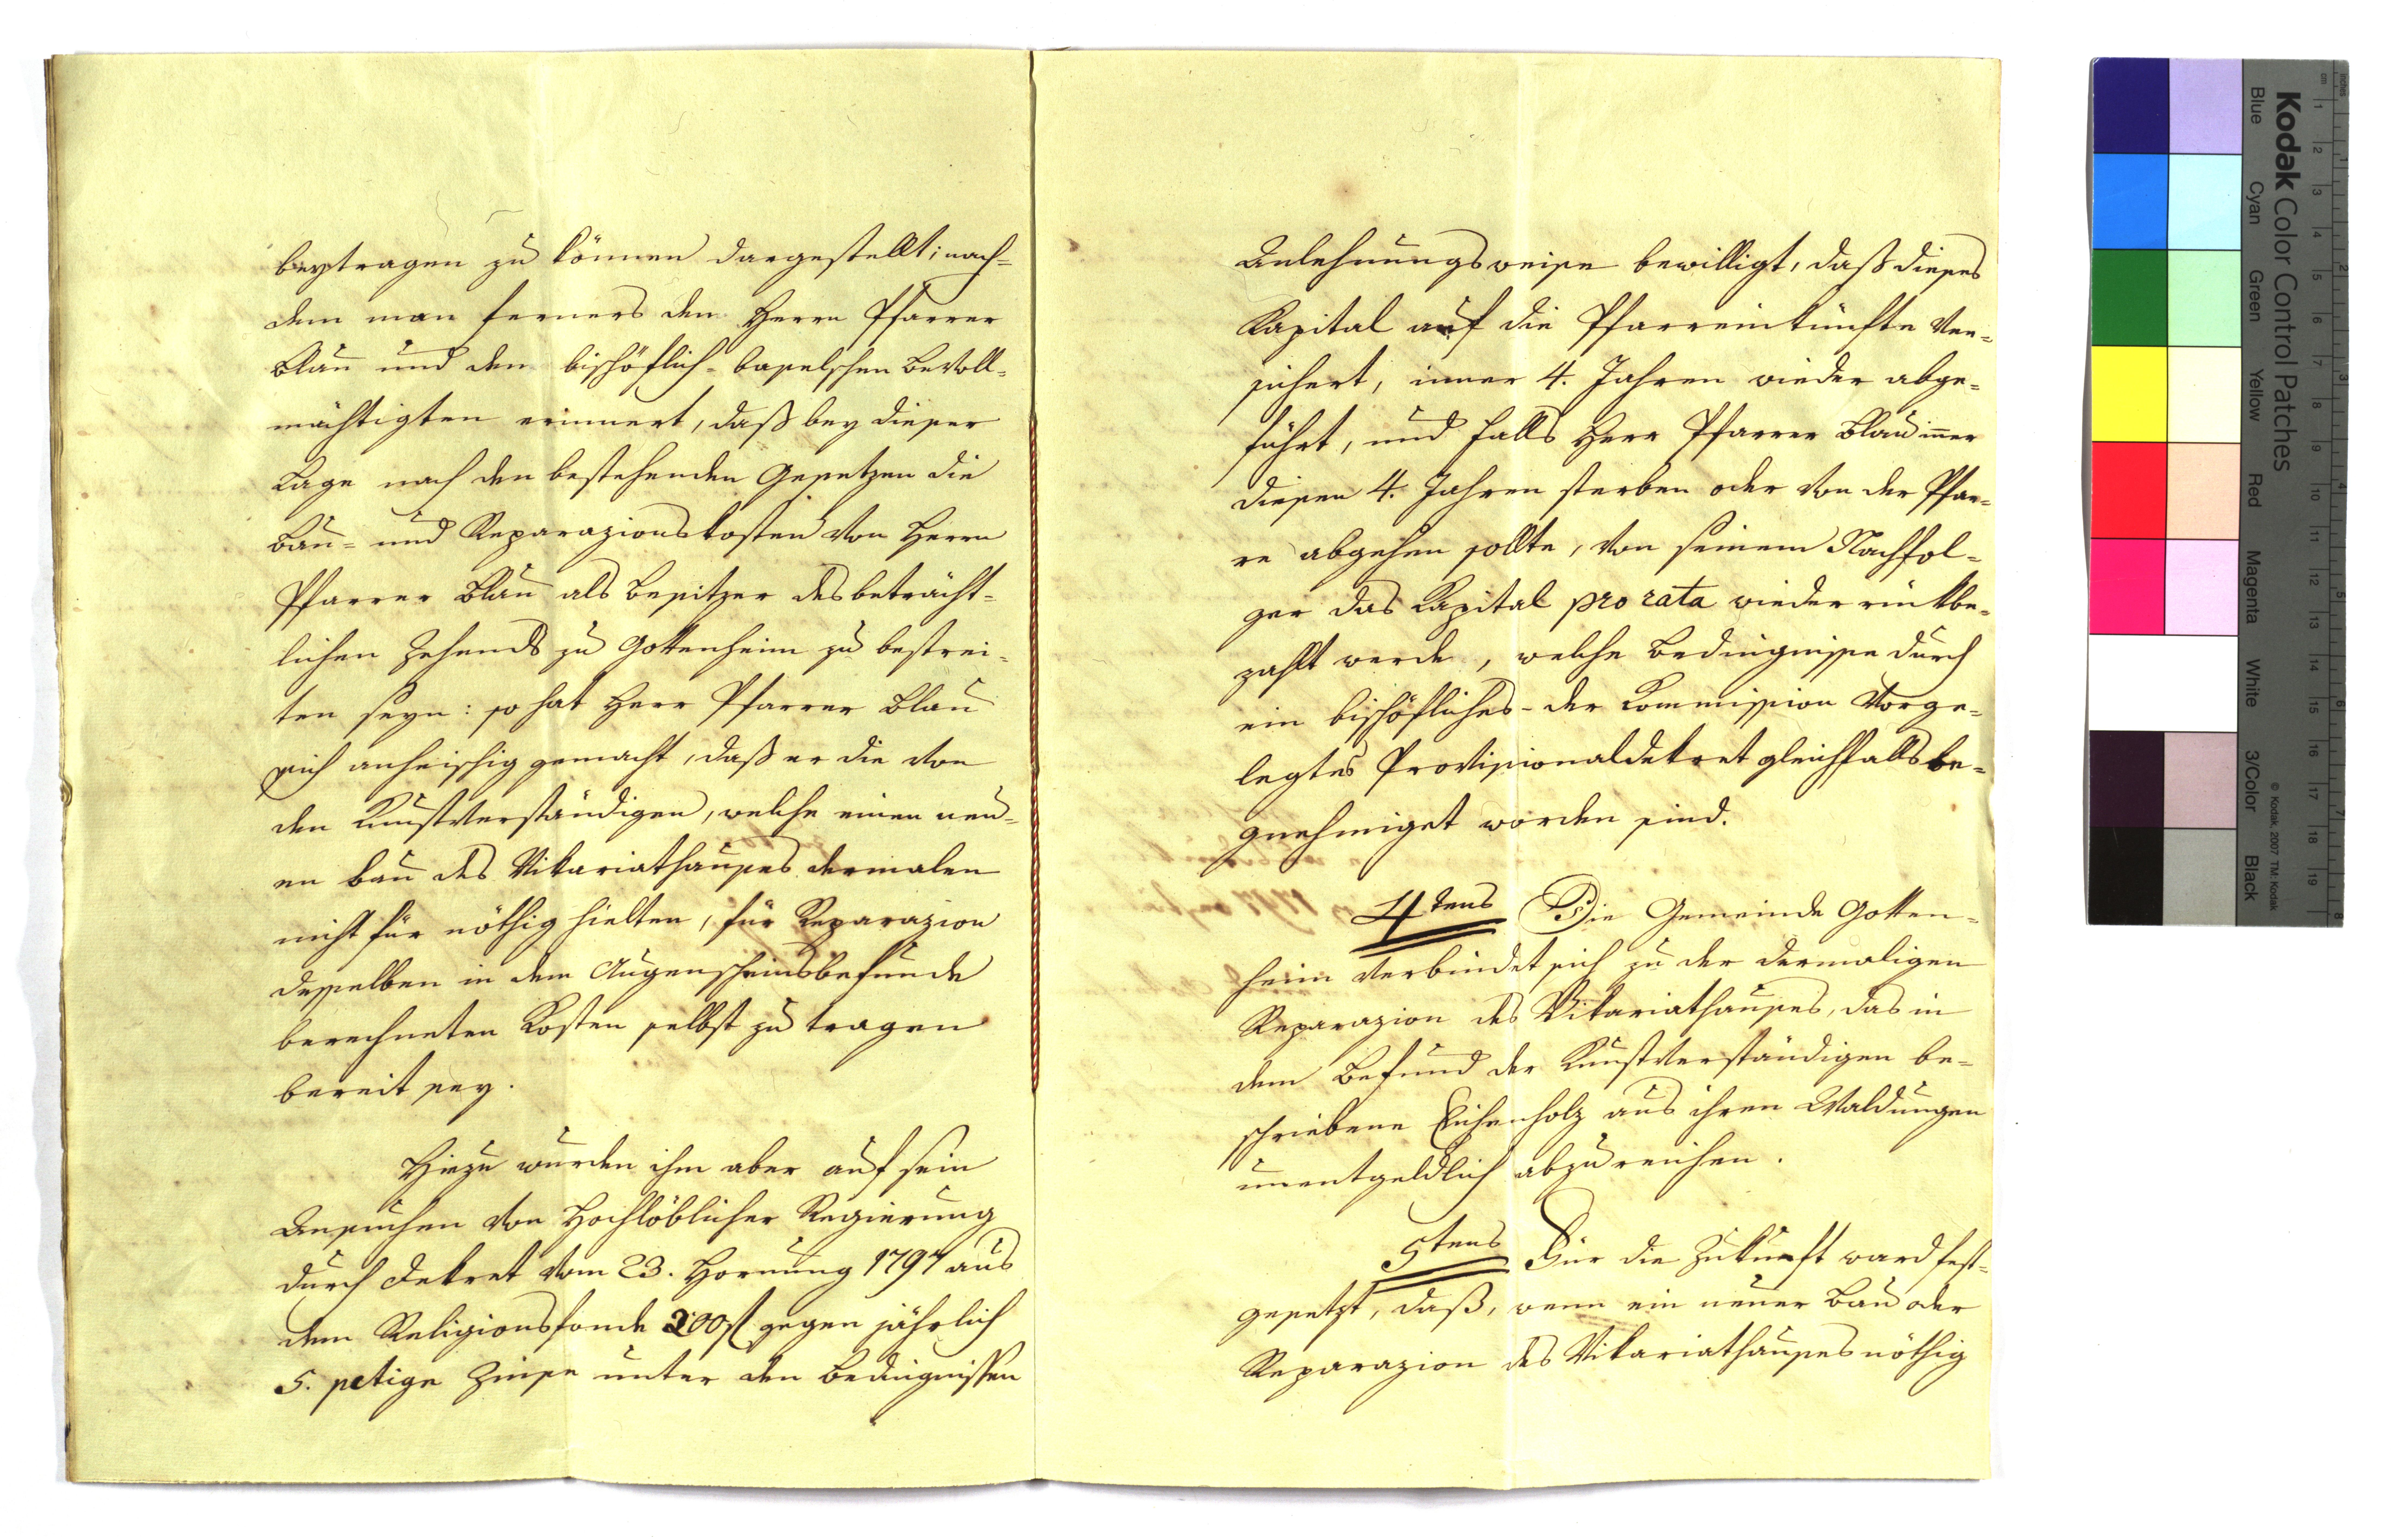 beytragen zu können dargestellt; nach-
dem man ferners den Herrn Pfarrer
Blau und den bischöflich-baselschen Bevoll-
mächtigten erinnert, daß bey dieser
Lage nach den bestehenden Gesetzen die
Bau- und Reparazionskosten von Herrn
Pfarrer Blau als Besitzer des beträcht-
lichen Zehends zu Gottenheim zu bestrei-
ten seyn: so hat Herr Pfarrer Blau
sich anheischig gemacht, daß er die von
den Kunstverständigen, welche einen neu-
en Bau des Vikariathauses dermalen
nicht für nöthig hielten, für Reparazion
desselben in dem Augenscheinsbefunde
berechneten Kosten selbst zu tragen
bereit sey.
Hiezu wurden ihm aber auf sein
Ansuchen von Hochlöblicher Regierung
durch Dekret vom 23. Hornung 1797 aus
dem Religionsfonde 200 fl gegen jährlich
5. pctige Zinse unter den Bedingnissen
Anlehnungsweise bewilligt, daß dieses
Kapital auf die Pfarreinkünfte ver-
sichert, inner 4. Jahren wieder abge-
führt, und falls Herr Pfarrer Blau iner
diesen 4. Jahren sterben oder von der Pfar-
re abgehen sollte, von seinem Nachfol-
ger das Kapital pro rata wieder rückbe-
zahlt werde, welche Bedingnisse durch
ein bischöfliches - der Kommission vorge-
legtes Provisionaldekret gleichfalls be-
gnehmiget worden sind.
4tens Die Gemeinde Gotten-
heim verbindet sich zu der dermaligen
Reparazion des Vikariathauses, das in
dem Befund der Kunstverständigen be-
schriebene Eichenholz aus ihren Waldungen
unentgeldlich abzureichen.
5tens Für die Zukunft ward fest-
gesetzt, daß, wenn ein neuer Bau oder
Reparazion des Vikariathauses nöthig
Kodak Color Control Patches
Blue Cyan Green Yellow Red Magenta White 3/Color Black
© Kodak, 2007 TM: Kodak